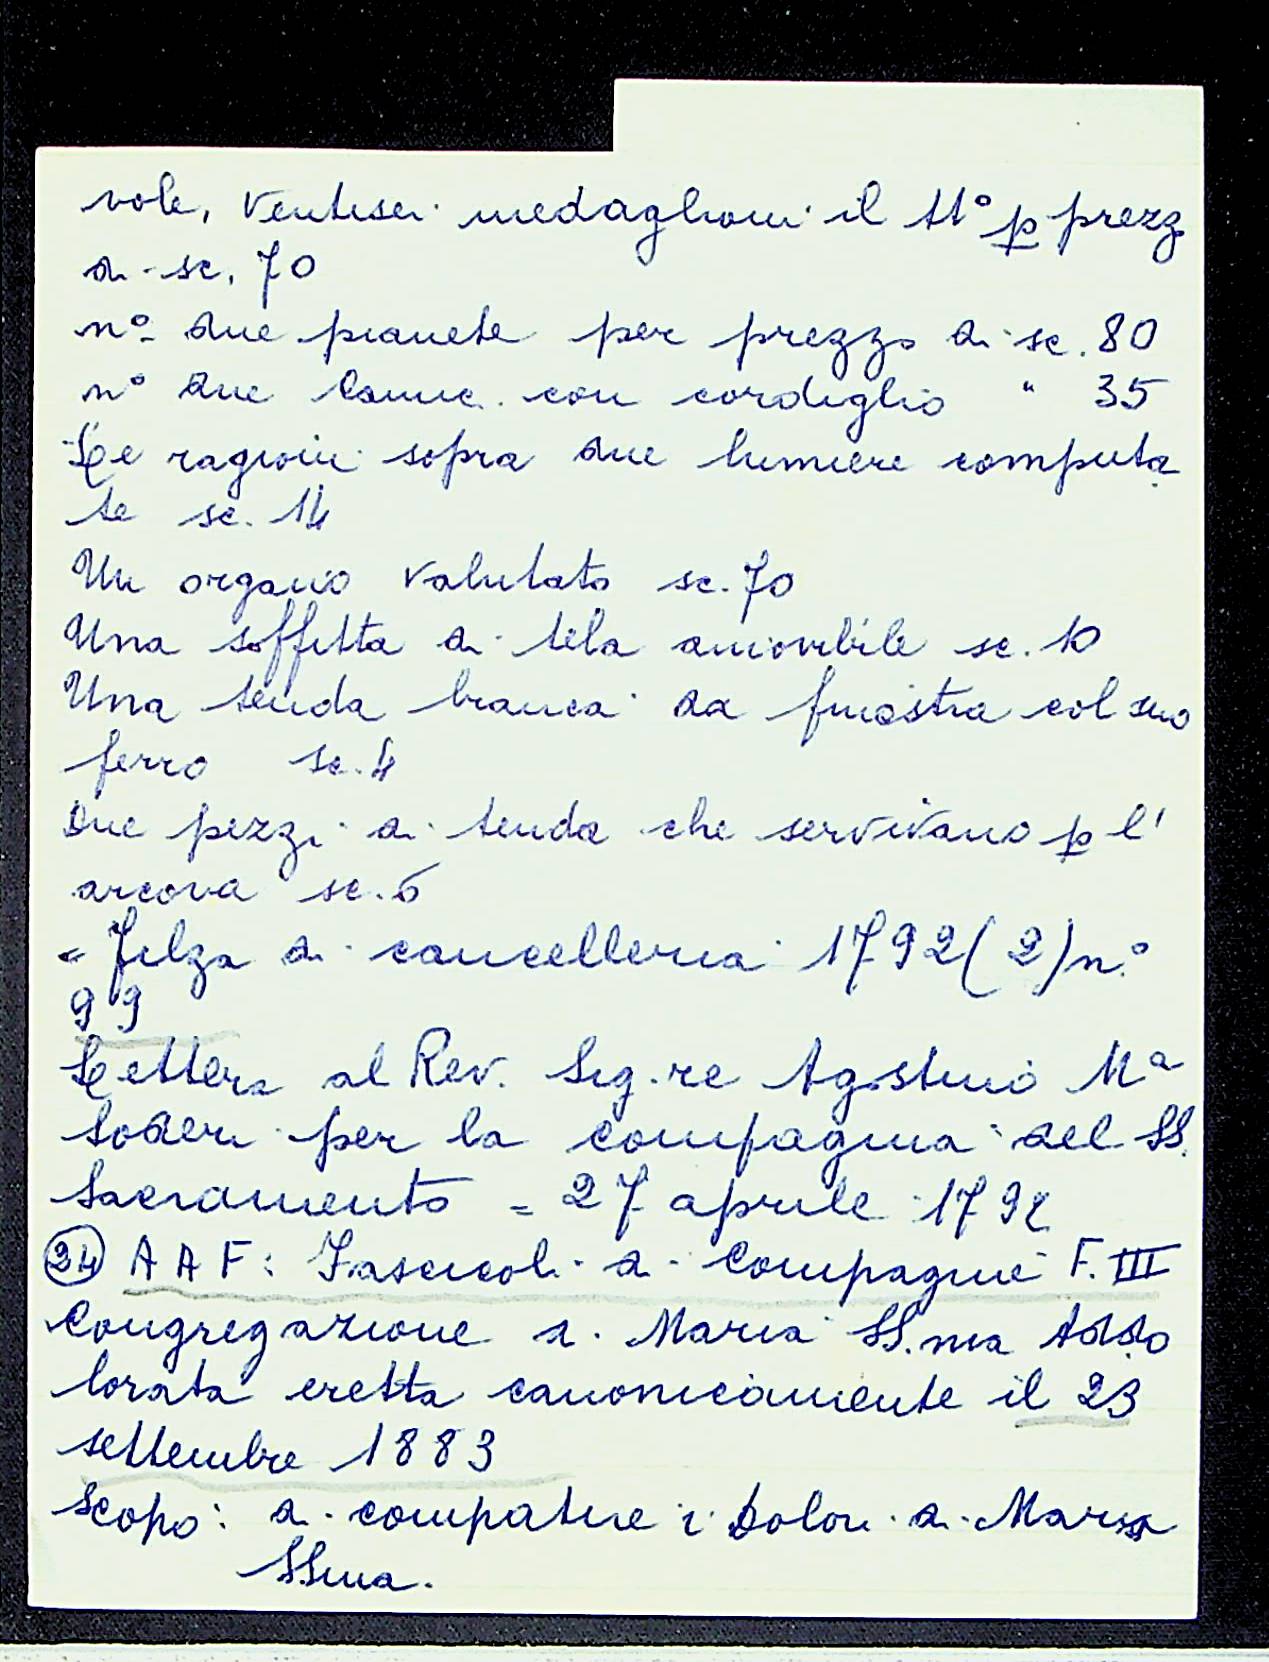 vole, ventisei medaglioni il tt° p prezz
di sc. 70
n° due pianete per prezzo di sc. 80
n° due camici con cordiglio " 35
Le ragioni sopra due lumiere computa
te sc. 14
Un organo valutato sc. 70
Una soffitta di tela amovibile sc. 10
Una tenda bianca da finestra col suo
ferro sc. 4
Due pezzi di tenda che servivano p l'
arcova sc. 6
= Filza di cancelleria 1792 (2) n.°
99
Lettera al Rev. Sig.re Agostino Mª
Soderi per la compagnia del SS.
Sacramento = 27 aprile 1792
24 A A F: Fascicoli di Compagnie F. III
Congregazione di Maria SS.ma Addo
lorata eretta canonicamente il 23
settembre 1883
Scopo: di compatire i Dolori di Maria
SSma.